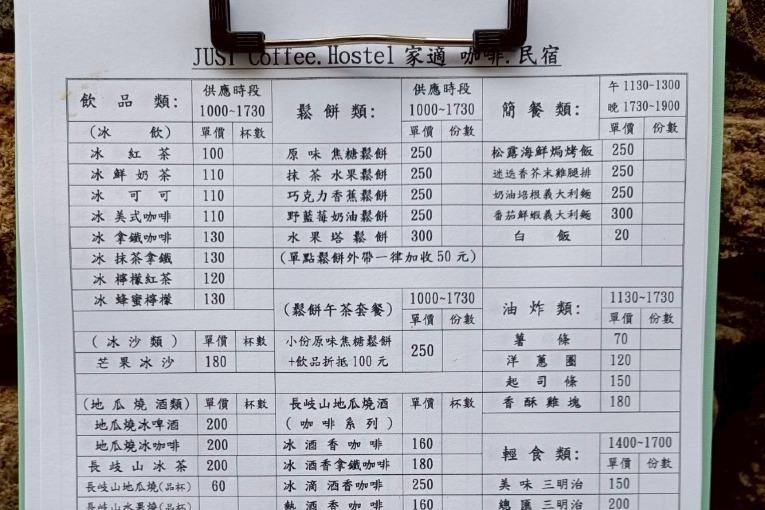 JUST Coffee.Hostel 家適 咖啡.民宿
飲品類: 供應時段 1000~1730
(冰飲) 單價 杯數
冰紅茶 100
冰鮮奶茶 110
冰可可 110
冰美式咖啡 110
冰拿鐵咖啡 130
冰抹茶拿鐵 130
冰檸檬紅茶 120
冰蜂蜜檸檬 130
(冰沙類) 單價 杯數
芒果冰沙 180
(地瓜燒酒類) 單價 杯數
地瓜燒冰啤酒 200
地瓜燒冰咖啡 200
長岐山冰茶 200
長岐山地瓜燒(品杯) 60
長岐山水果燒(品杯)
鬆餅類: 供應時段 1000~1730
單價 份數
原味焦糖鬆餅 250
抹茶水果鬆餅 250
巧克力香蕉鬆餅 250
野藍莓奶油鬆餅 250
水果塔鬆餅 300
(單點鬆餅外帶一律加收50元)
(鬆餅午茶套餐) 1000~1730
單價 份數
小份原味焦糖鬆餅
+飲品折抵100元 250
長岐山地瓜燒酒 單價 杯數
(咖啡系列)
冰酒香咖啡 160
冰酒香拿鐵咖啡 180
冰滴酒香咖啡 250
熱酒香咖啡 160
簡餐類: 午1130-1300
晚1730~1900
單價 份數
松露海鮮焗烤飯 250
迷迭香芥末雞腿排 250
奶油培根義大利麵 250
番茄鮮蝦義大利麵 300
白飯 20
油炸類: 1130~1730
單價 份數
薯條 70
洋蔥圈 120
起司條 150
香酥雞塊 180
輕食類: 1400~1700
單價 份數
美味三明治 150
總匯三明治 200